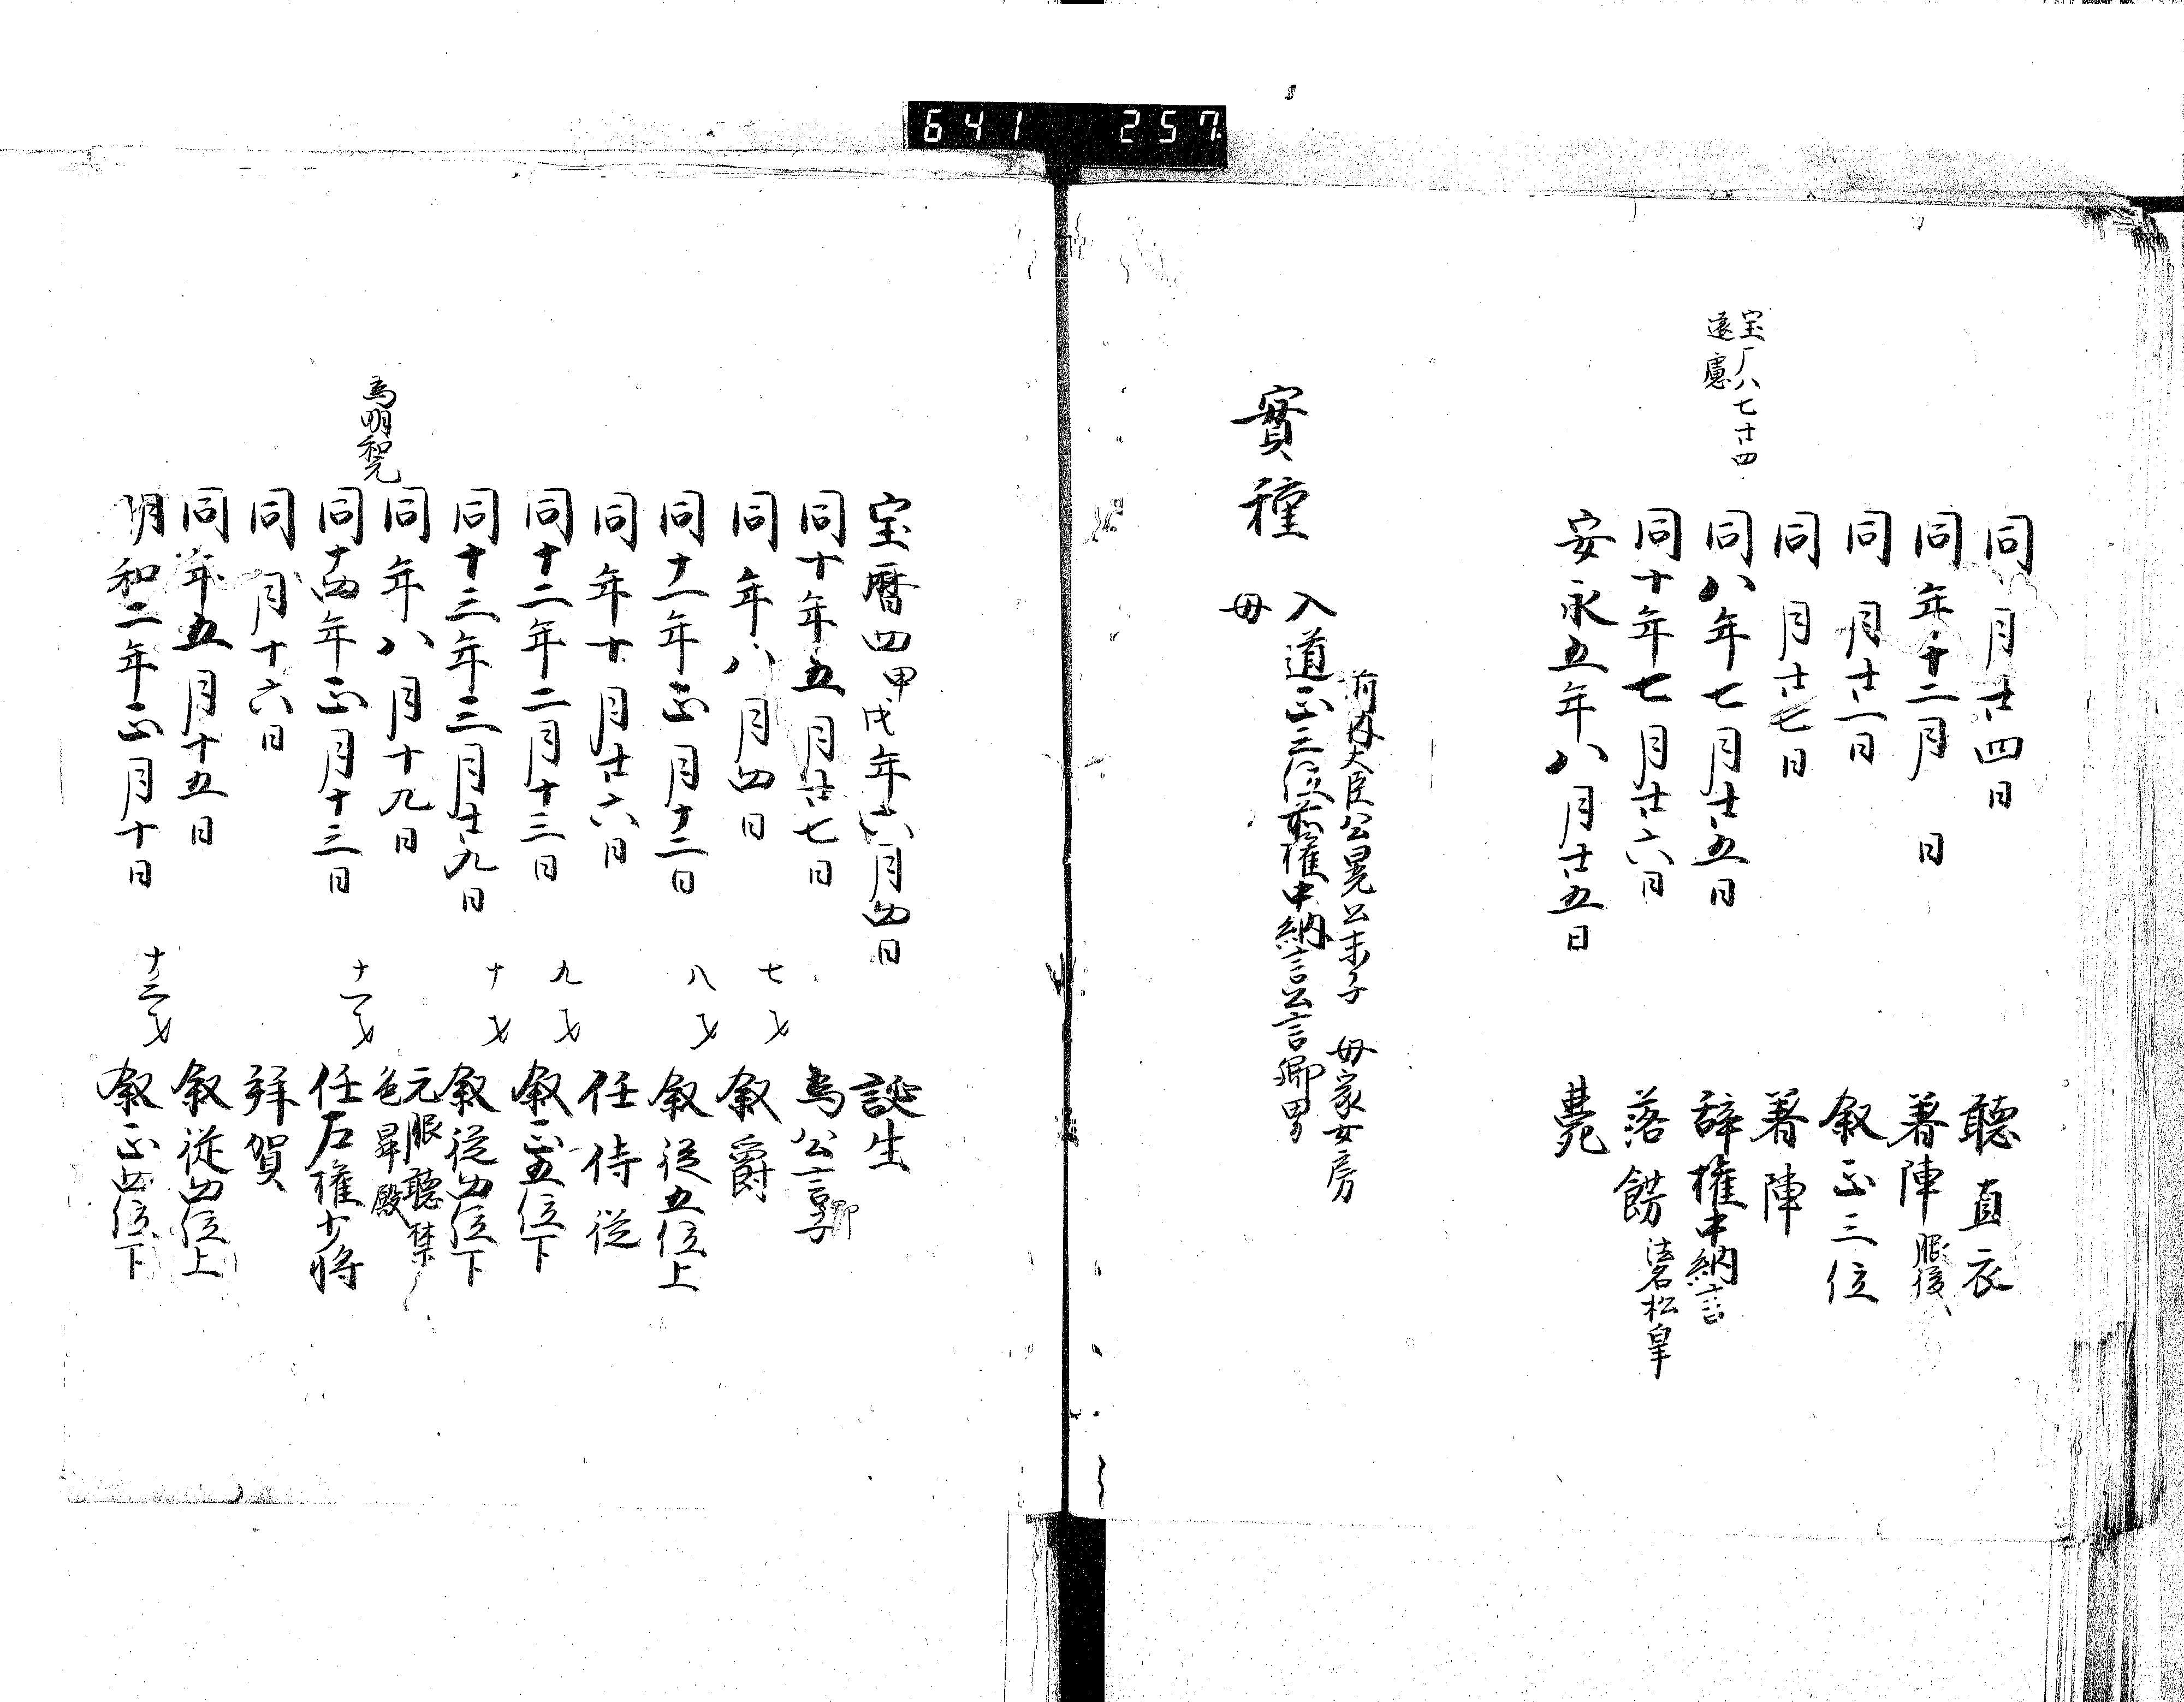 641 257
同 月廿四日 聴直衣
同 年十二月 日 著陣 服後
同 月廿一日 叙正三位
同 月廿七日 著陣
宝厂八七廿四
遠慮
同八年七月廿五日 辞権中納言
同十年七月廿六日 落餝 法名松皐
安永五年八月廿五日 薨
前内大臣公晃公末子 母家女房
實種 入道正三位前権中納言公言卿男
母
宝暦四甲戌年六月四日 誕生
同十年五月廿七日 為公言卿子
同 年八月四日 七才 叙爵
同十一年正月十二日 八才 叙従五位上
同 年十月廿六日 任侍従
同十二年二月十三日 九才 叙正五位下
同十三年三月廿九日 十才 叙従四位下
同 年八月十九日 元服聴禁色昇殿
為明和元
同十四年正月十三日 十一才 任右権少将
同 月十六日 拝賀
同 年五月十五日 叙従四位上
明和二年正月十日 十二才 叙正四位下